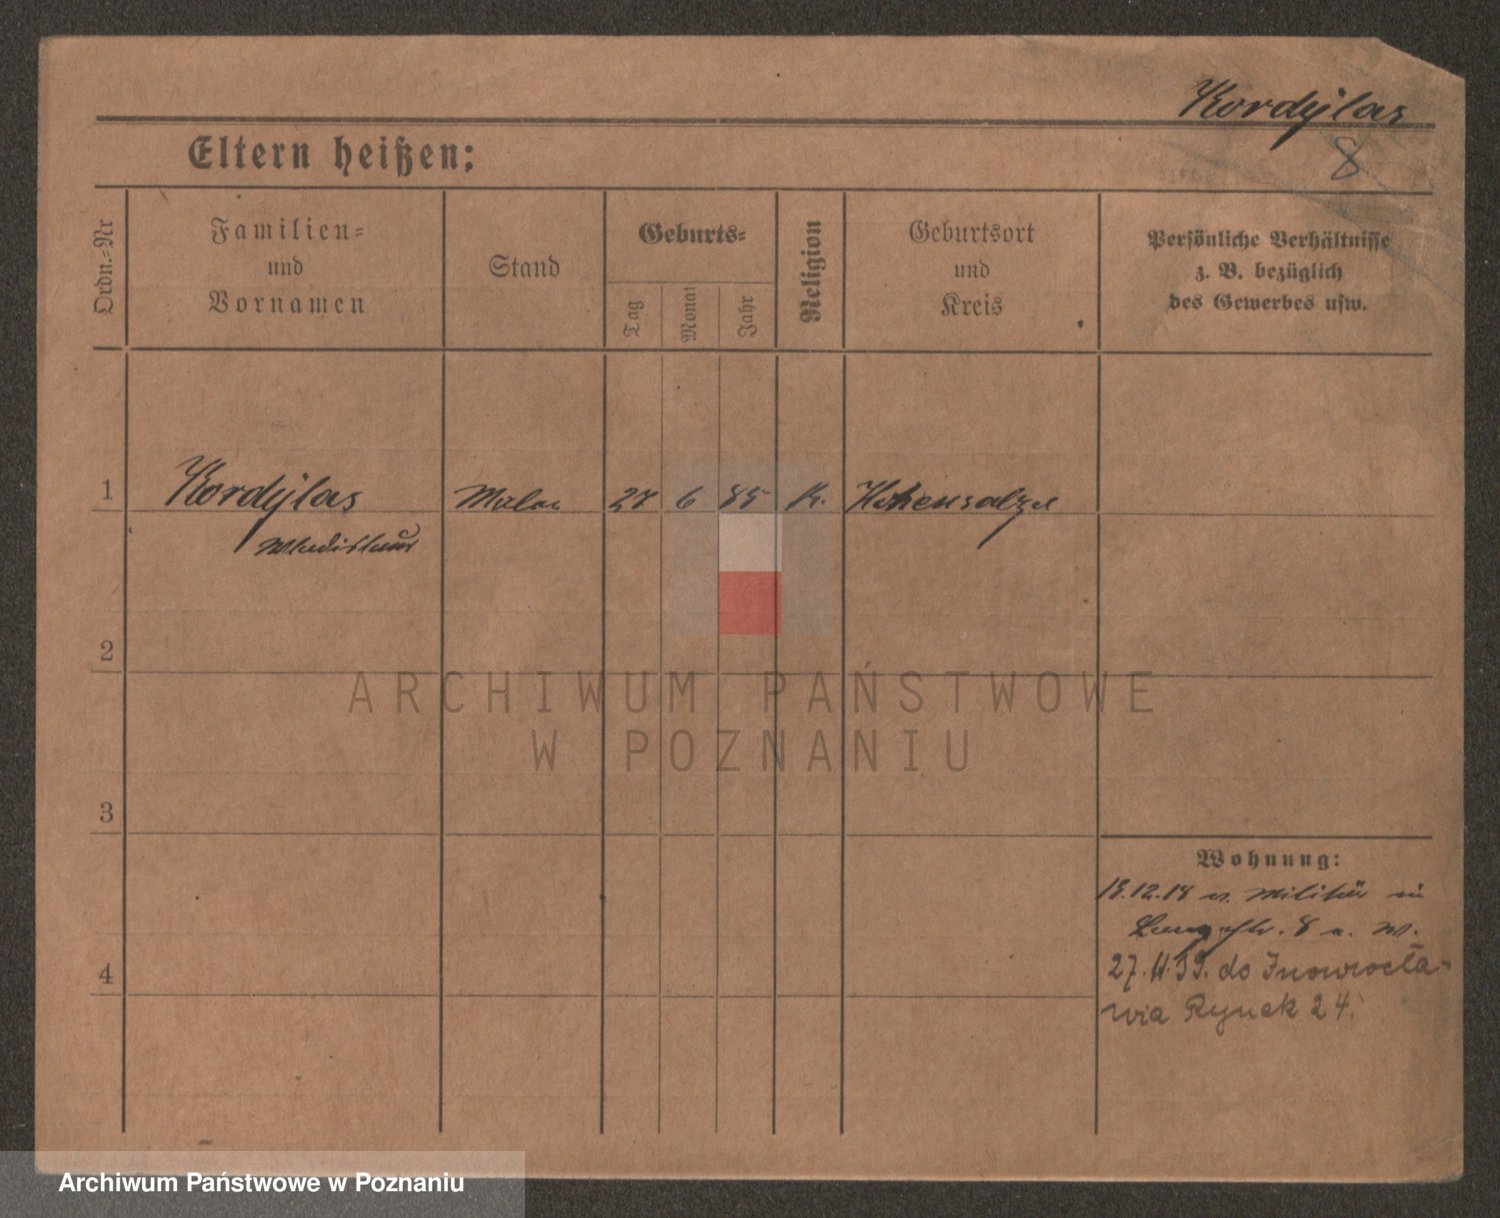 Kordylas
8
Eltern heißen:
Ordn.-Nr
Familien-
und
Vornamen
Stand
Geburts-
Tag
Monat
Jahr
Religion
Geburtsort
und
Kreis
Persönliche Verhältnisse
z. B. bezüglich
des Gewerbes usw.
1
Kordylas Maler 27 6 85 K. Hohensalza
Wladislaus
2
ARCHIWUM PAŃSTWOWE
W POZNANIU
3
Wohnung:
12.18 v. Militär in
8
4
27. 11. 39. do Inowrocła-
wia Rynek 24.
Archiwum Państwowe w Poznaniu